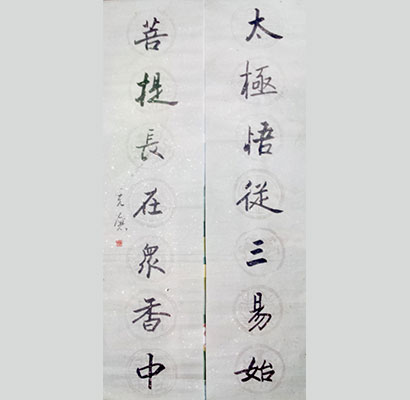 太極悟從三易始
菩提長在眾香中